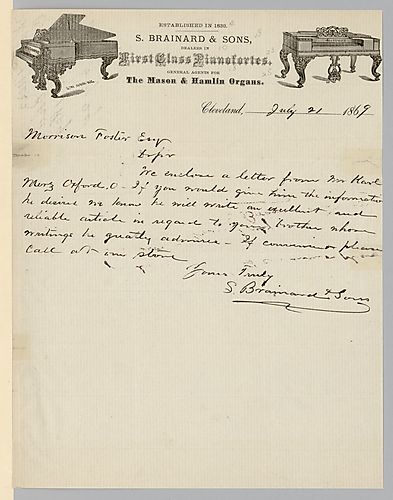 ESTABLISHED IN 1836.
S. BRAINARD & SONS,
DEALERS IN
First Class Pianofortes,
GENERAL AGENTS FOR
The Mason & Hamlin Organs.
Cleveland, July 21 1869
Morrison Foster Esq
Dr Sir
We enclose a letter from Mr Karl
Merz Oxford, O - If you would give him the information
he desires we know he will write an excellent and
reliable article in regard to your brother whose
writings he greatly admires - If convenient please
Call at our store
Yours Truly
S. Brainard & Sons